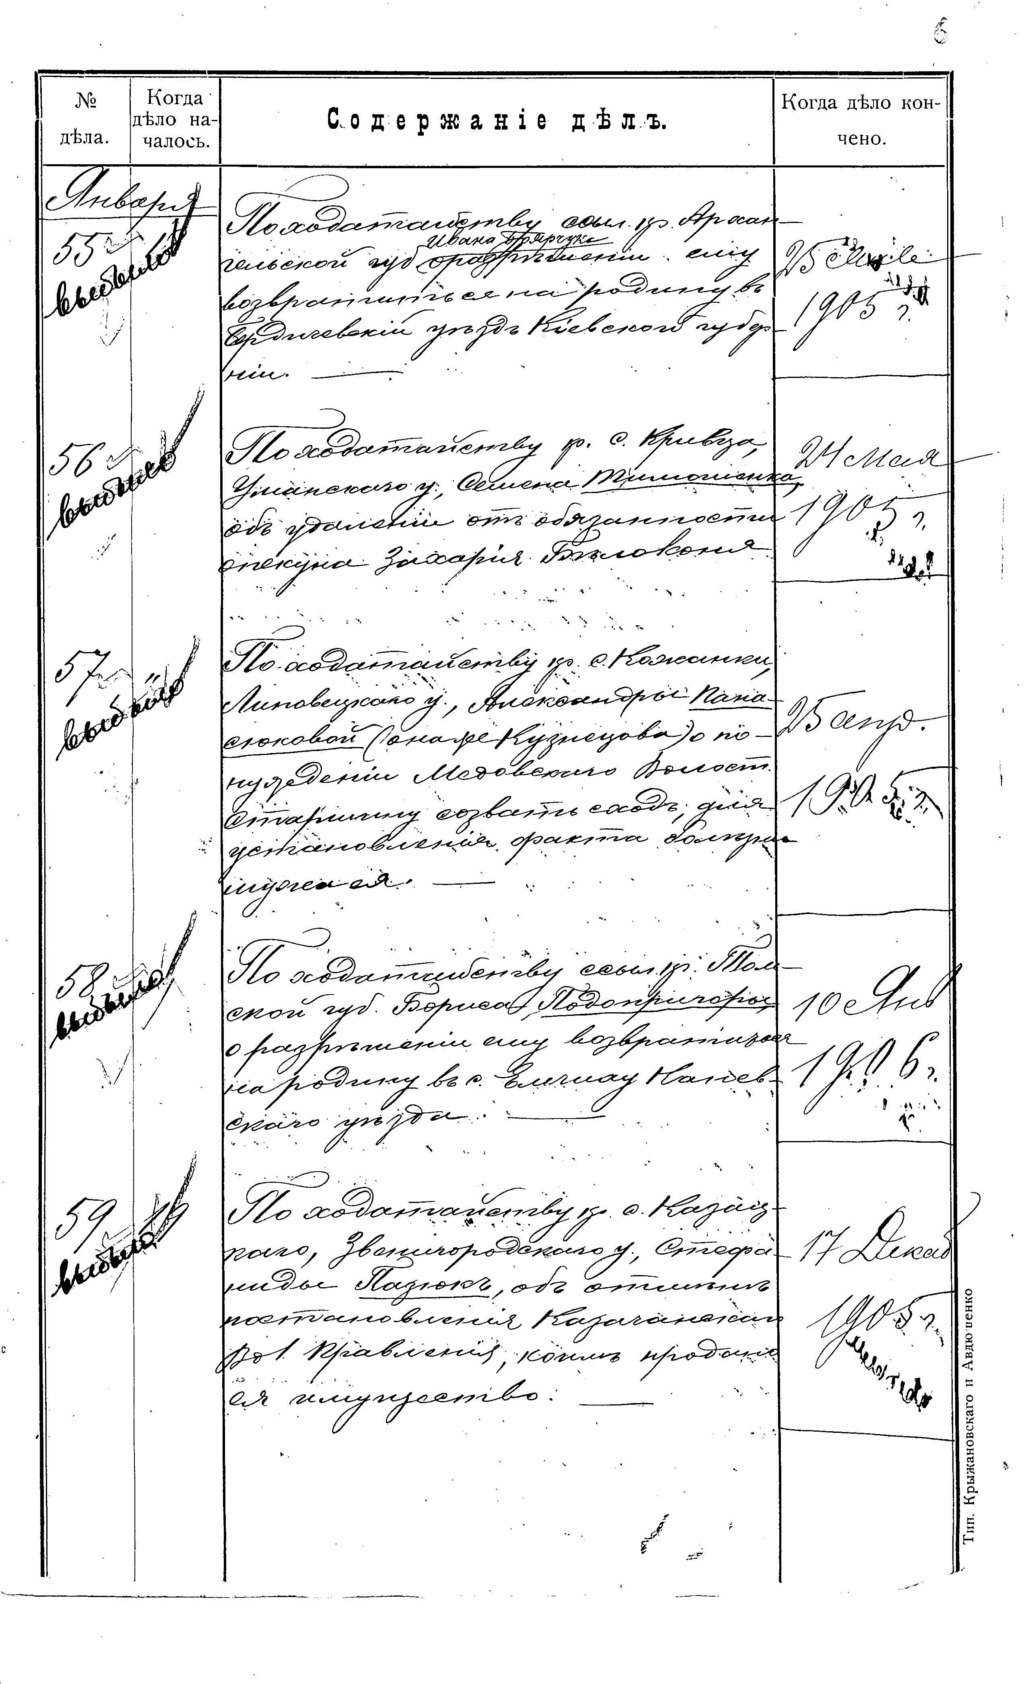 6
№
дѣла.
Когда
дѣло на-
чалось.
Содержаніе дѣлъ.
Когда дѣло кон-
чено.
Января
55
выбыло
По ходатайству ссыл. кр. Архан-
Ивана
гельской губ о разрѣшеніи ему
возвратиться на родину въ
Бердичевскій уѣздъ Кіевской губер
ніи.
25
1905 г.
56
выбыло
По ходатайству кр. с. Кривца,
Уманскаго у., Семена Тимошенка,
объ удаленіи отъ обязанности
опекуна Захарія Бѣлоконя
24 Мая
1905 г.
57 "
выбыло
По ходатайству кр. с. Кожанки,
Липовецкаго у., Александры Пана-
сюковой (она же Кузнецова) о по-
нужденіи Медовскаго Волост.
Старшину созвать сходъ, для
установленія факта болѣзни
мужа ея.
25 апр.
1905 г.
58
выбыло
По ходатайству ссыл. кр. Том-
ской губ. Бориса Подопригоры,
о разрѣшеніи ему возвратиться
на родину въ с. Емчиху Канев-
скаго уѣзда.
10 Янв
1906 г.
59
выбыло
По ходатайству кр. с. Казац-
каго, Звенигородскаго у., Стефа-
ниды Пазюкъ, объ отмѣнѣ
постановленія Казачанскаго
Вол. Правленія, коимъ продано
ея имущество.
17 Декаб
1905 г.
Тип. Крыжановскаго и Авдюченко